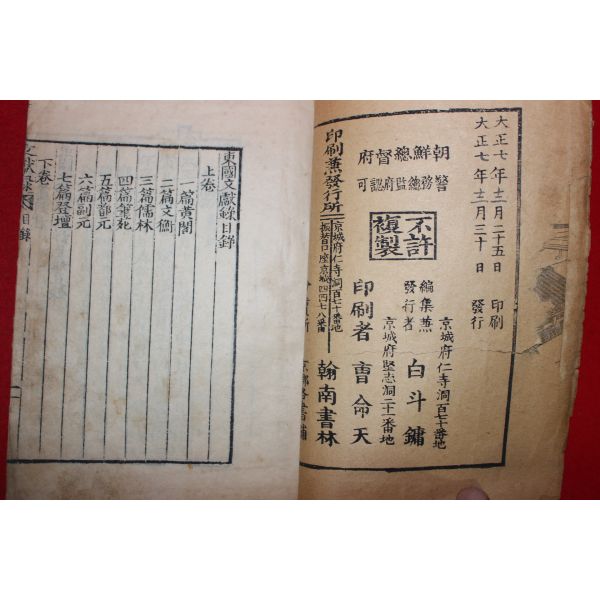 大正七年十二月二十五日 印刷
大正七年十二月三十日 發行
朝鮮總督府
警務總監府認可
不許複製
京城府仁寺洞百七十番地
編集兼發行者 白斗鏞
京城府堅志洞二十一番地
印刷者 曺命天
印刷兼發行所
京城府仁寺洞百七十番地
振替口座京城四四七八番
翰南書林
東國文獻錄目錄
上卷
一篇黃閣
二篇文衡
三篇儒林
四篇筆苑
五篇
六篇副元
七篇登壇
下卷
文獻錄 目錄